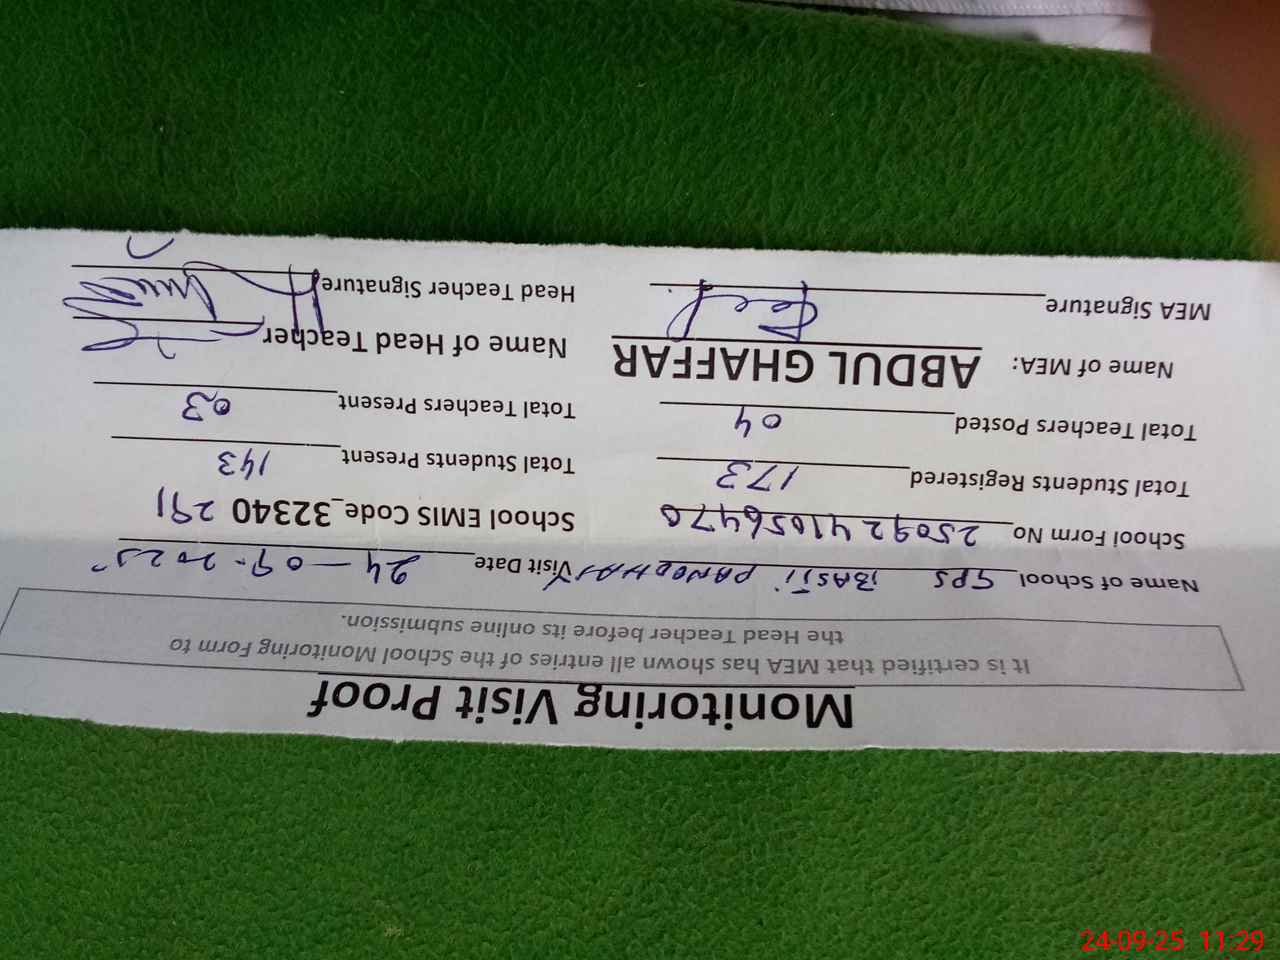 Monitoring Visit Proof
It is certified that MEA has shown all entries of the School Monitoring Form to
the Head Teacher before its online submission.
Name of School GPS BASTI Visit Date 24-09-2025
School Form No 25092441056470 School EMIS Code_32340 291
Total Students Registered 173 Total Students Present 143
Total Teachers Posted 04 Total Teachers Present 03
Name of MEA: ABDUL GHAFFAR Name of Head Teacher
MEA Signature Head Teacher Signature
24-09-25 11:29